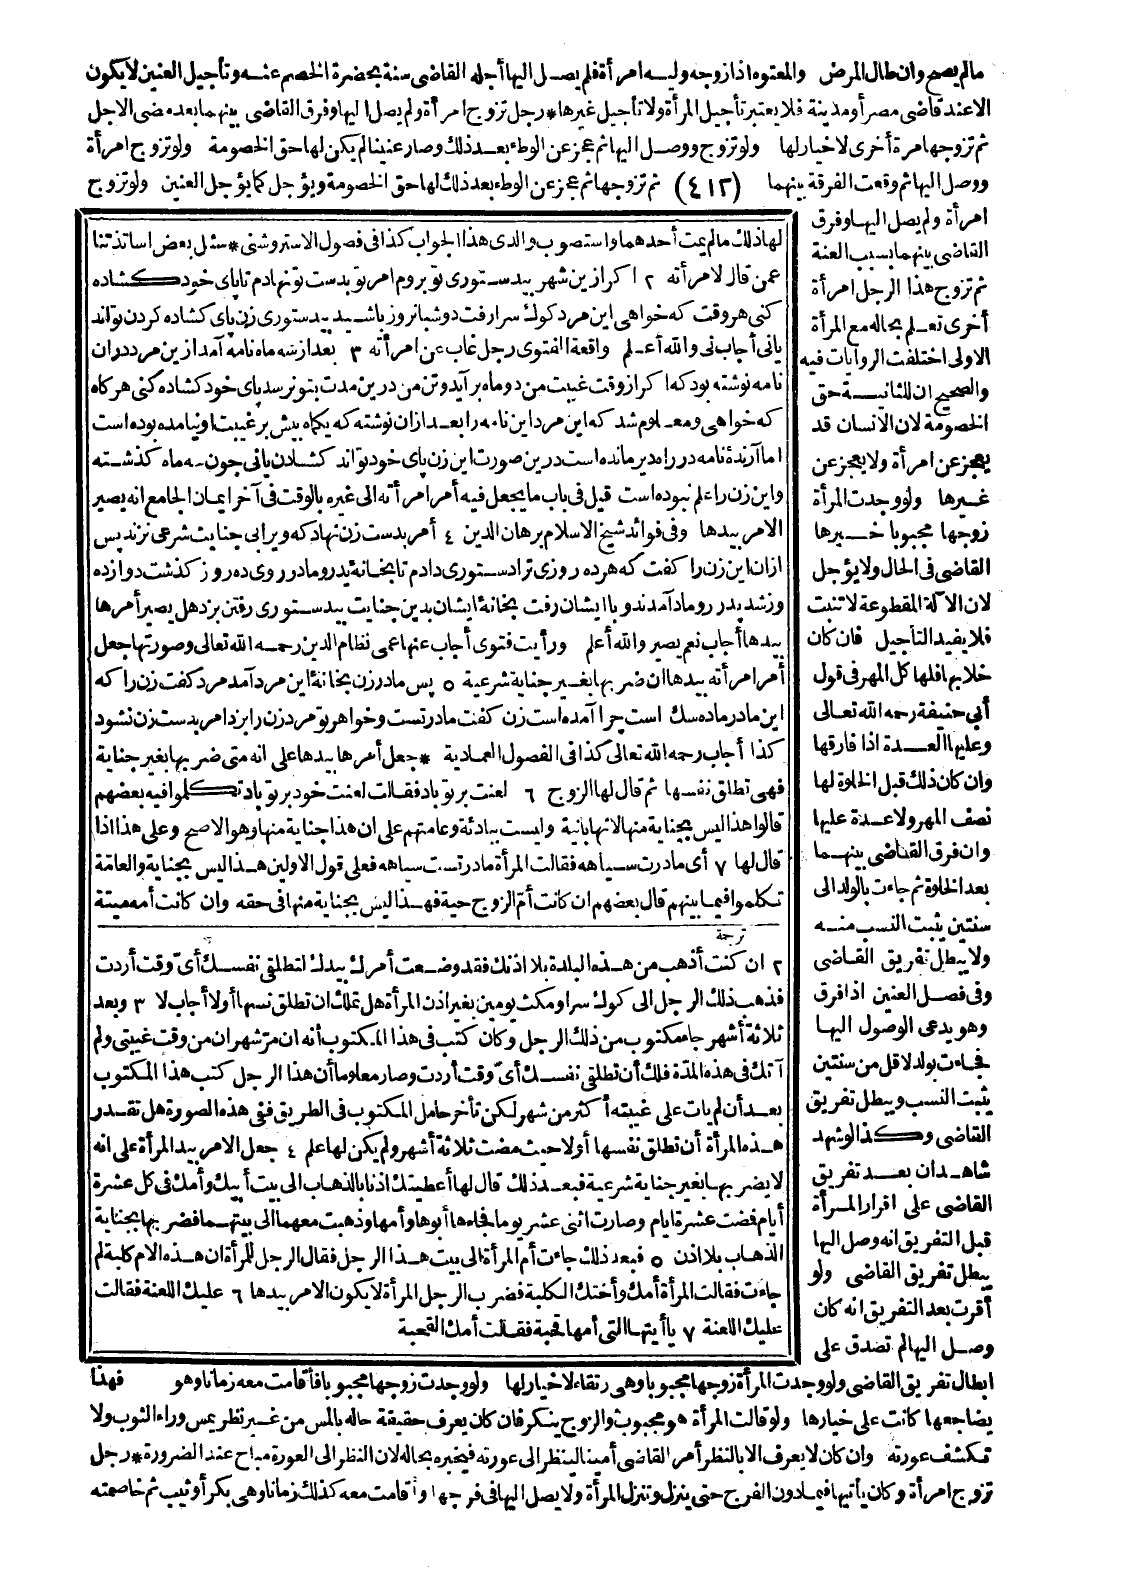 مالم يصح وان طال المرض والمعتوه اذا زوجه وليه امرأة فلم يصل اليها أجله القاضى سنة بحضرة الخصم عنه وتأجيل العنين لا يكون
الا عند قاضى مصر أو مدينة فلا يعتبر تأجيل المرأة ولا تأجيل غيرها * رجل تزوج امرأة ولم يصل اليها وفرق القاضى بينهما بعد مضى الاجل
ثم تزوجها مرة أخرى لا خيار لها ولو تزوج ووصل اليها ثم عجز عن الوطء بعد ذلك وصار عنينا لم يكن لها حق الخصومة ولو تزوج امرأة
ووصل اليها ثم وقعت الفرقة بينهما (٤١٢) ثم تزوجها ثم عجز عن الوطء بعد ذلك لها حق الخصومة ويؤجل كما يؤجل العنين ولو تزوج
امرأة ولم يصل اليها وفرق
القاضى بينهما بسبب العنة
ثم تزوج هذا الرجل امرأة
أخرى تعلم بحاله مع المرأة
الاولى اختلفت الروايات فيه
والصحيح ان للثانية حق
الخصومة لان الانسان قد
يعجز عن امرأة ولا يعجز عن
غيرها ولو وجدت المرأة
زوجها مجبوبا خيرها
القاضى فى الحال ولا يؤجل
لان الآلة المقطوعة لا تنبت
فلا يفيد التأجيل فان كان
خلا بها فلها كل المهر فى قول
أبى حنيفة رحمه الله تعالى
وعليها العدة اذا فارقها
وان كان ذلك قبل الخلوة لها
نصف المهر ولا عدة عليها
وان فرق القاضى بينهما
بعد الخلوة ثم جاءت بالولد الى
سنتين يثبت النسب منه
ولا يبطل تفريق القاضى
وفى فصل العنين اذا فرق
وهو يدعى الوصول اليها
فجاءت بولد لاقل من سنتين
يثبت النسب ويبطل تفريق
القاضى وكذا لو شهد
شاهدان بعد تفريق
القاضى على اقرار المرأة
قبل التفريق انه وصل اليها
يبطل تفريق القاضى ولو
أقرت بعد التفريق انه كان
وصل اليها لم تصدق على
لها ذلك مالم يمت أحدهما واستصوب والدى هذا الجواب كذا فى فصول الاستروشنى * سئل بعض اساتذتنا
عمن قال لامرأته ٢ اكر ازين شهر بيدستورى تو بروم امر تو بدست تو نهادم تا پاى خود كشاده
كنى هر وقت كه خواهى اين مرد كوك سرا رفت دو شبانروز باشيد بيدستورى زن پاى كشاده كردن تواند
يا نى أجاب نى والله أعلم واقعة الفتوى رجل غاب عن امرأته ٣ بعد از سه ماه نامه آمد ازين مرد در ان
نامه نوشته بود كه اكر از وقت غيبت من دو ماه بر آيد وتن من درين مدت بتو نرسد پاى خود كشاده كنى هركاه
كه خواهى ومعلوم شد كه اين مرد اين نامه را بعد از ان نوشته كه يكماه بيش بر غيبت او نيامده بوده است
اما آرندۀ نامه در راه دير مانده است درين صورت اين زن پاى خود تواند كشادن يا نى چون سه ماه كذشته
واين زن را علم نبوده است قيل فى باب ما يجعل فيه أمر امرأته الى غيره بالوقت فى آخر ايمان الجامع انه يصير
الامر بيدها وفى فوائد شيخ الاسلام برهان الدين ٤ أمر بدست زن نهاد كه ويرا بى جنايت شرعى نزند پس
ازان اين زن را كفت كه هر ده روزى ترا دستورى دادم تا بخانۀ پدر ومادر روى ده روز كذشت دوازده
روز شد پدر ومادر آمدند وبا ايشان رفت بخانۀ ايشان بدين جنايت بيدستورى رفتن بزد هل يصير أمرها
بيدها أجاب نعم يصير والله أعلم ورأيت فتوى أجاب عنها عمى نظام الدين رحمه الله تعالى وصورتها جعل
أمر امرأته بيدها ان ضربها بغير جناية شرعية ٥ پس مادر زن بخانۀ اين مرد آمد مرد كفت زن را كه
اين مادر ماده سك است چرا آمده است زن كفت مادر تست وخواهر تو مرد زن را بزد امر بدست زن نشود
كذا أجاب رحمه الله تعالى كذا فى الفصول العمادية * جعل أمرها بيدها على انه متى ضربها بغير جناية
فهى تطلق نفسها ثم قال لها الزوج ٦ لعنت بر تو باد فقالت لعنت خود بر تو باد تكلموا فيه بعضهم
قالوا هذا ليس بجناية منها لانها ثانية وليست ببادئة وعامتهم على ان هذا جناية منها وهو الاصح وعلى هذا اذا
قال لها ٧ أى مادرت سياهه فقالت المرأة مادر تست سياهه فعلى قول الاولين هذا ليس بجناية والعامة
تكلموا فيما بينهم قال بعضهم ان كانت أم الزوج حية فهذا ليس بجناية منها فى حقه وان كانت أمه ميتة
ترجمة
٢ ان كنت أذهب من هذه البلدة بلا اذنك فقد وضعت أمرك بيدك لتطلقى نفسك أىّ وقت أردت
فذهب ذلك الرجل الى كوك سرا ومكث يومين بغير اذن المرأة هل تملك ان تطلق نفسها أولا أجاب لا ٣ وبعد
ثلاثة أشهر جاء مكتوب من ذلك الرجل وكان كتب فى هذا المكتوب أنه ان مرّ شهران من وقت غيبتى ولم
آتك فى هذه المدّة فلك أن تطلقى نفسك أىّ وقت أردت وصار معلوما أن هذا الرجل كتب هذا المكتوب
بعد أن لم يأت على غيبته أكثر من شهر لكن تأخر حامل المكتوب فى الطريق ففى هذه الصورة هل تقدر
هذه المرأة أن تطلق نفسها أولا حيث مضت ثلاثة أشهر ولم يكن لها علم ٤ جعل الامر بيد المرأة على انه
لا يضربها بغير جناية شرعية فبعد ذلك قال لها أعطيتك اذنا بالذهاب الى بيت أبيك وأمك فى كل عشرة
أيام فمضت عشرة ايام وصارت اثنى عشر يوما فجاءها أبوها وأمها وذهبت معهما الى بيتهما فضربها بجناية
الذهاب بلا اذن ٥ فبعد ذلك جاءت أم المرأة الى بيت هذا الرجل فقال الرجل للمرأة ان هذه الام كلبة لم
جاءت فقالت المرأة أمك وأختك الكلبة فضرب الرجل المرأة لا يكون الامر بيدها ٦ عليك اللعنة فقالت
عليك اللعنة ٧ يا أيتها التى أمها قحبة فقالت أمك القحبة
ابطال تفريق القاضى ولو وجدت المرأة زوجها مجبوبا وهى رتقاء لا خيار لها ولو وجدت زوجها مجبوبا فأقامت معه زمانا وهو فهذا
يضاجعها كانت على خيارها ولو قالت المرأة هو مجبوب والزوج ينكر فان كان يعرف حقيقة حاله بالمس من غير نظر يمس وراء الثوب ولا
تكشف عورته وان كان لا يعرف الا بالنظر أمر القاضى أمينا لينظر الى عورته فيخبره بحاله لان النظر الى العورة مباح عند الضرورة * رجل
تزوج امرأة وكان يأتيها فيما دون الفرج حتى ينزل وتنزل المرأة ولا يصل اليها فى فرجها وأقامت معه كذلك زمانا وهى بكر أو ثيب ثم خاصمته